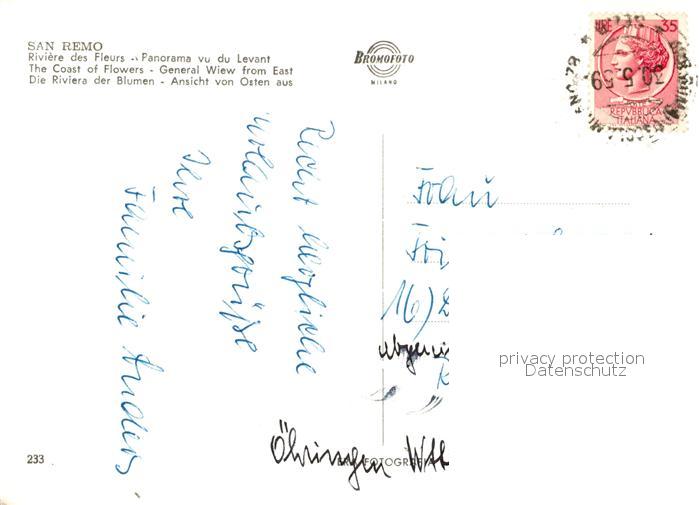 SAN REMO
Rivière des Fleurs - Panorama vu du Levant
The Coast of Flowers - General Wiew from East
Die Riviera der Blumen - Ansicht von Osten aus
BROMOFOTO
MILANO
LIRE 35
30.5.59
REPVBBLICA
ITALIANA
Recht herzliche
Urlaubsgrüße
Ihre
Familie Anders
Frau
16)
privacy protection
Datenschutz
Öhringen Wtt
FOTOGRAFIA
233